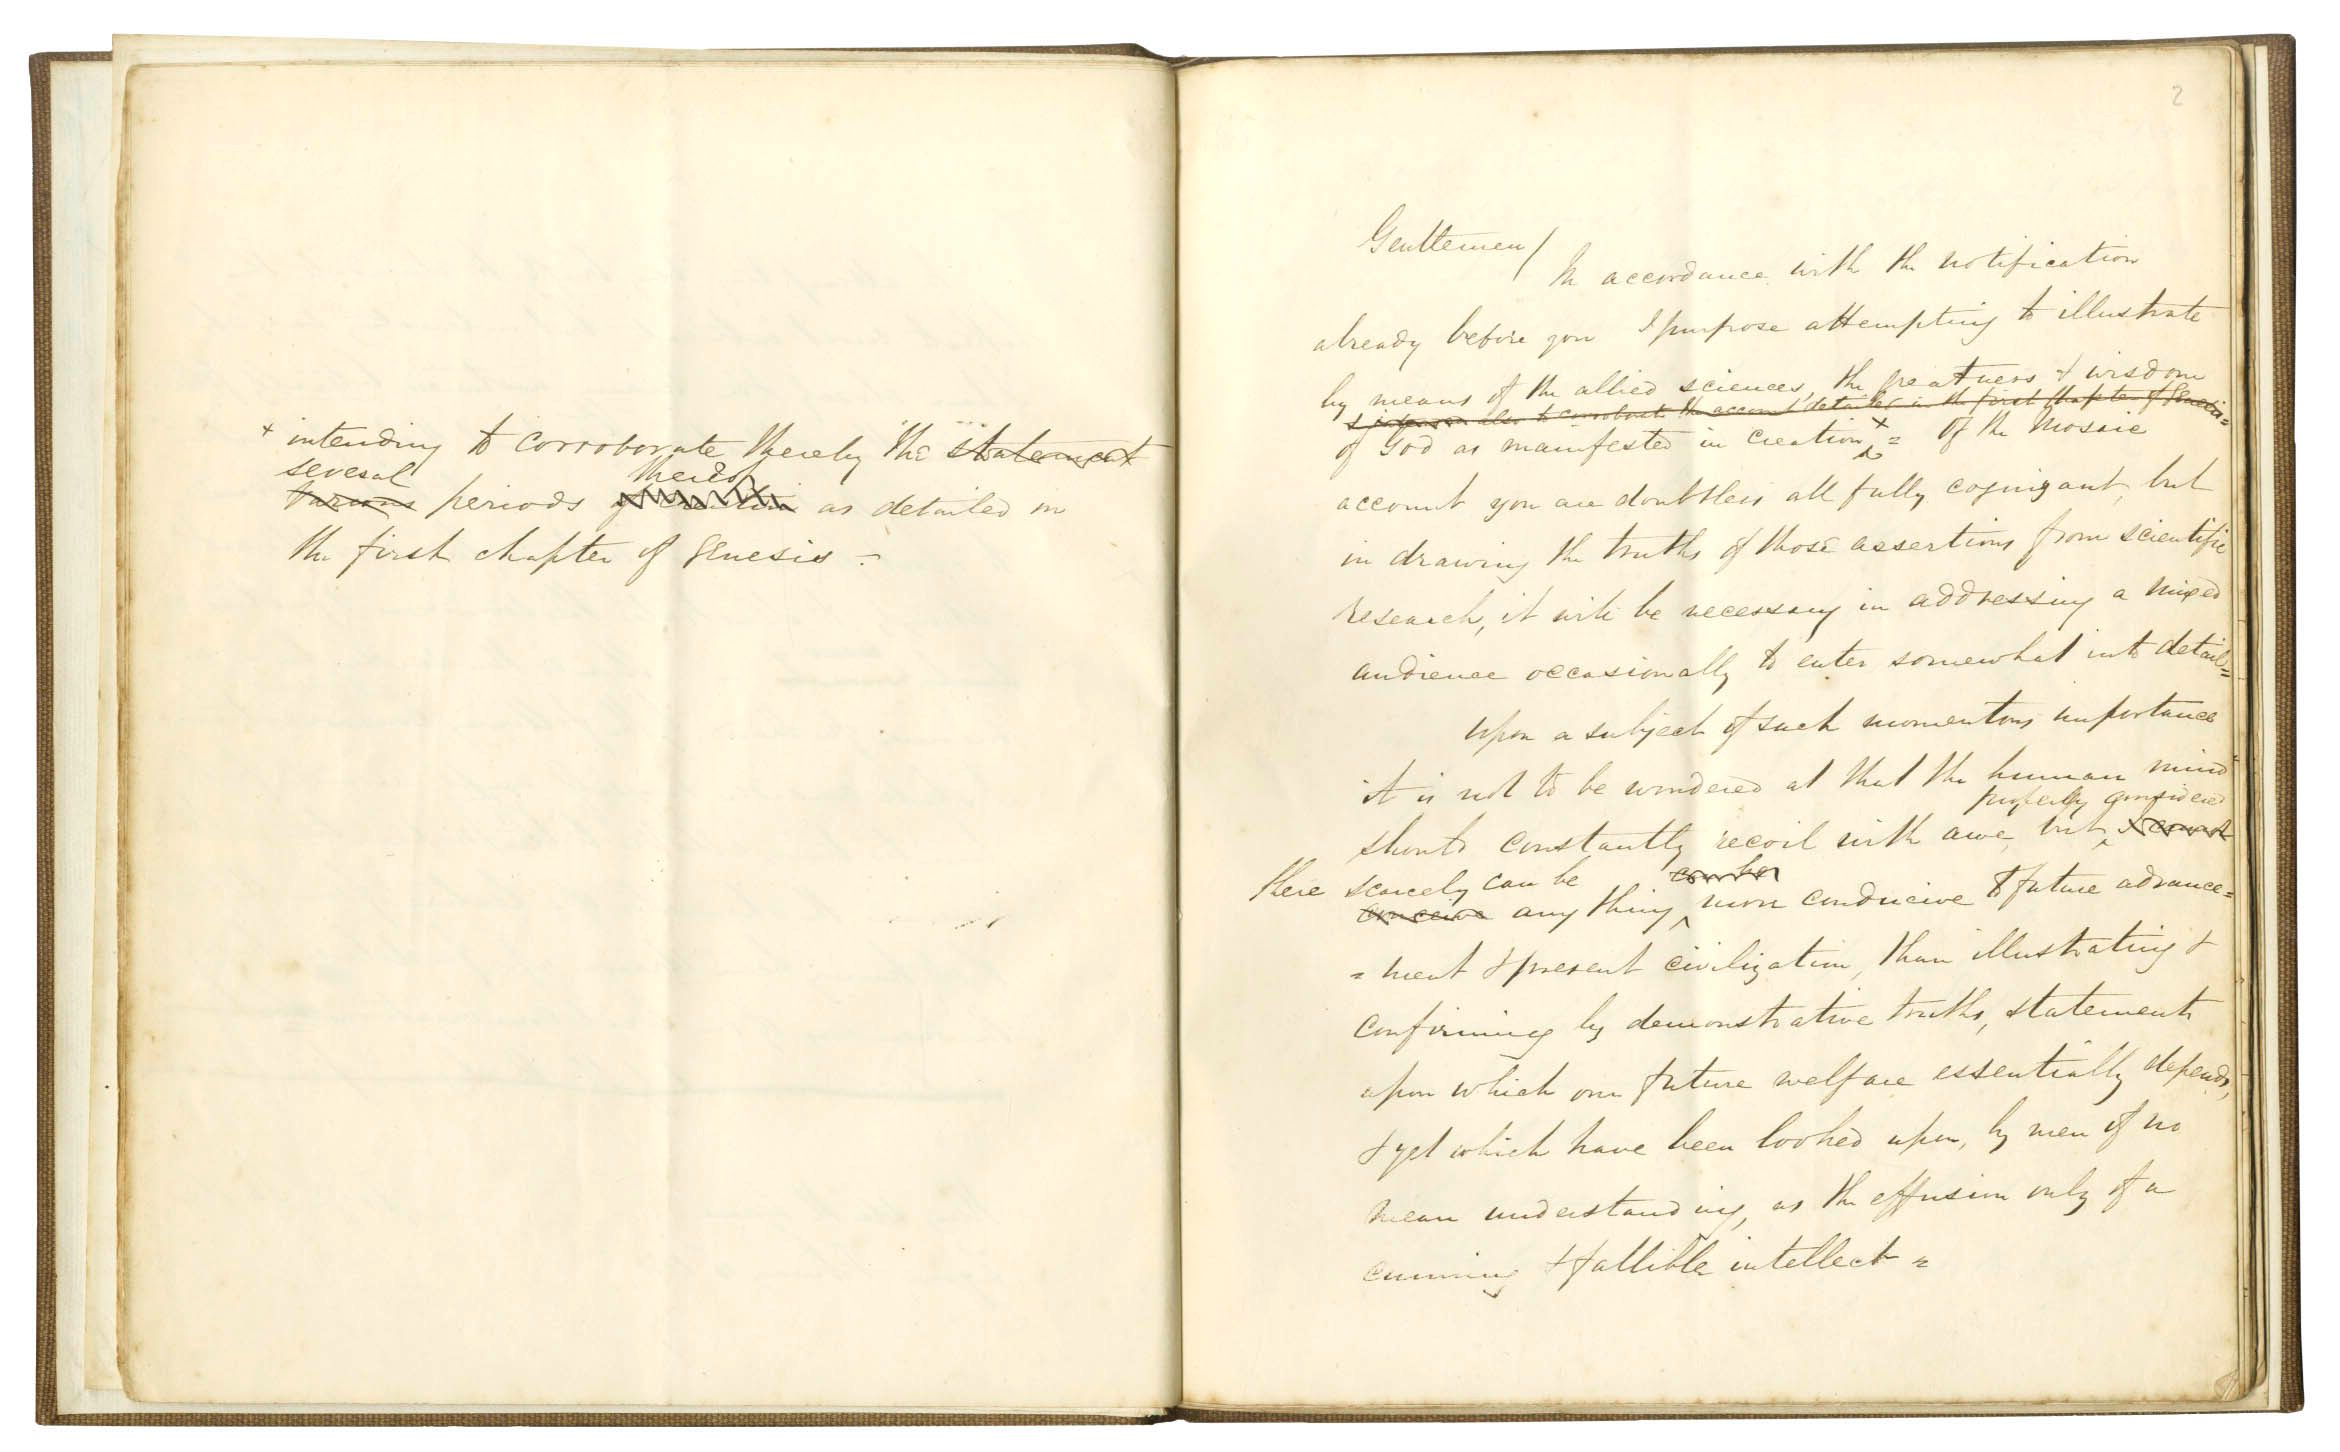 + intending to corroborate thereby the statement
several thereof
various periods of creation as detailed in
the first chapter of Genesis =
2
Gentlemen/
In accordance with the notification
already before you I purpose attempting to illustrate
by means of the allied sciences, the greatness & wisdom
also to corroborate the account detailed in the first chapter of Genesis =
of God as manifested in creation + = Of the Mosaic
account you are doubtless all fully cognizant, but
in drawing the truths of those assertions from scientific
research, it will be necessary in addressing a mixed
audience occasionally to enter somewhat into detail =
Upon a subject of such momentous importance
it is not to be wondered at that the human mind
properly considered
should constantly recoil with awe, but I cannot
there scarcely can be can be
conceive any thing more conducive to future advance=
=ment & present civilization, than illustrating &
confirming by demonstrative truths, statements
upon which our future welfare essentially depends,
& yet which have been looked upon, by men of no
mean understanding, as the effusion only of a
cunning & fallible intellect =